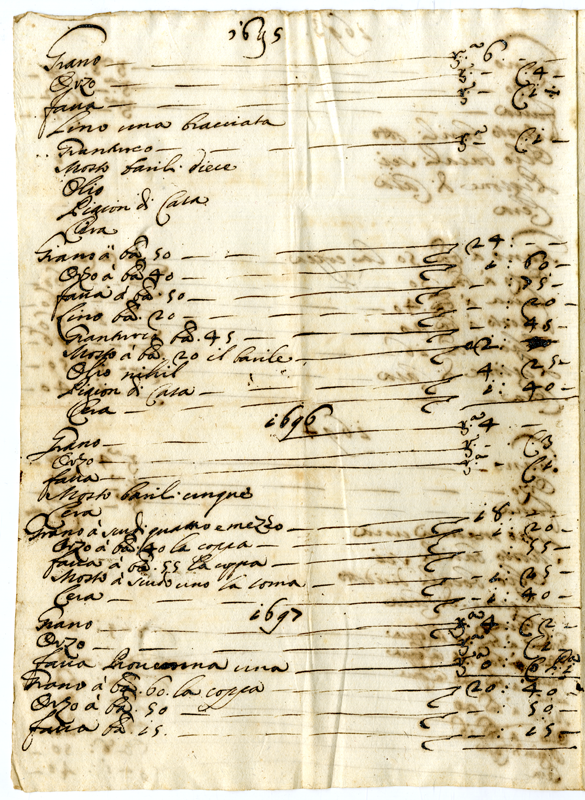 1695
Grano — r.a 6
Orzo — r. — C. 4 —
faua — r. — C. 1
Lino una bracciata
Granturco — r.a — C. 1 —
Mosto barili diece
Olio
Pigion di Casa
Cera
Grano à bā. 50 — 24 : —
Orzo à bā. 40 — 1 : 60 —
faua à bā. 50 — : 75 —
Lino bā. 20 — : 20 —
Granturco bā. 45 — : 45 —
Mosto à bā. 20 il barile — 2 :
Olio nihil
Pigion di Casa — 4 : 25 —
Cera — 1 : 40 —
1696
Grano — r.a 4
Orzo — r. C. 3
faua — r.a — C. 1
Mosto barili cinque
Cera
Grano à scudi quattro e mezzo — 18 : —
Orzo à bā. 40 la coppa — 1 : 20 —
faua à bā. 55 la coppa — : 55 —
Mosto à scudo uno la soma — 1 : 25 —
Cera — 1 : 40 —
1697
Grano — r.a 4 C. 2 —
Orzo — r.a C. 1
faua una — r.a 0 C.
Grano à bā. 60 la coppa — 20 : 40 —
Orzo à bā. 50 — : 50 —
faua bā. 15 — : 15 —